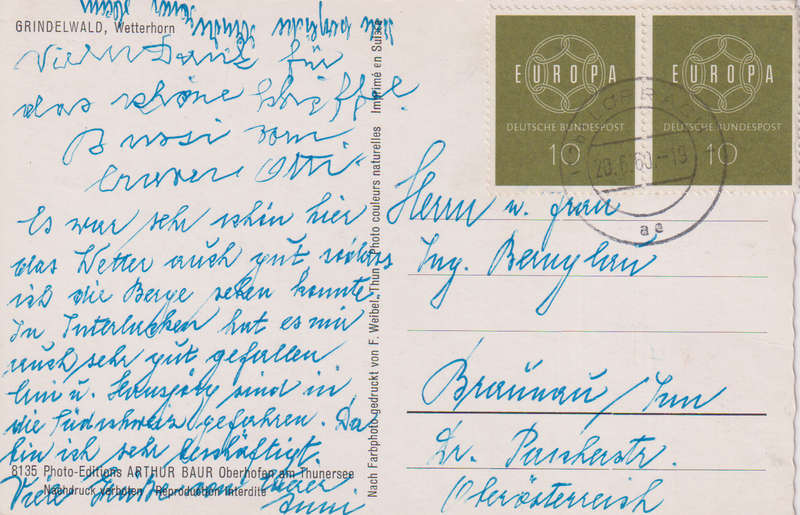 GRINDELWALD, Wetterhorn
Vielen Dank für
das schöne Schiffel.
Bussi vom
Otti
Es war sehr schön hier
das Wetter auch gut sodass
ich die Berge sehen konnte
In Interlacken hat es mir
auch sehr gut gefallen
Lini u. Hansjörg sind in
die Südschweiz gefahren. Da
bin ich sehr beschäftigt.
8135 Photo-Editions ARTHUR BAUR Oberhofen am Thunersee
Nachdruck verboten Reproduction interdite
Viele Grüße von
Nach Farbphoto gedruckt von F. Weibel, Thun Photo couleurs naturelles Imprimé en Suisse
EUROPA
DEUTSCHE BUNDESPOST
10
EUROPA
DEUTSCHE BUNDESPOST
10
20.6.60.-19
ae
Herrn u. Frau
Ing.
Braunau/Inn
Dr.
Oberösterreich